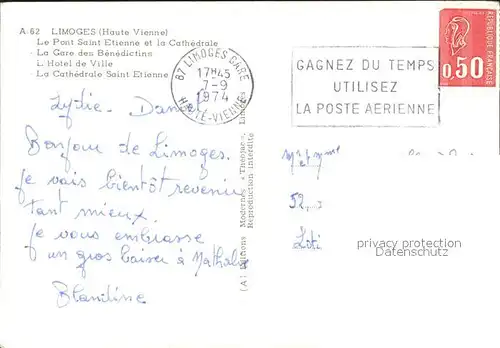 A-62 LIMOGES (Haute Vienne)
Le Pont Saint Etienne et la Cathédrale
La Gare des Bénédictins
L'Hotel de Ville
La Cathédrale Saint Etienne
87 LIMOGES GARE
17H45
7-9
1974
HAUTE-VIENNE
GAGNEZ DU TEMPS
UTILISEZ
LA POSTE AERIENNE
0,50
REPUBLIQUE FRANÇAISE
Lydie. Daniel
Bonjour de Limoges.
Je vais bientôt revenir
tant mieux.
Je vous embrasse
un gros baiser à Nathalie
Blandine
(A) Editions Modernes "Théojac", Limoges
Reproduction Interdite
Mr et Mme
52
privacy protection
Datenschutz